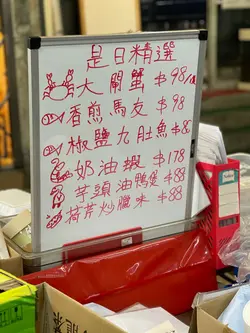 是日精選
大閘蟹 $98/
香煎馬友 $98
椒鹽九肚魚 $88
奶油蝦 $178
芋頭油鴨煲 $88
荷芹炒臘味 $88